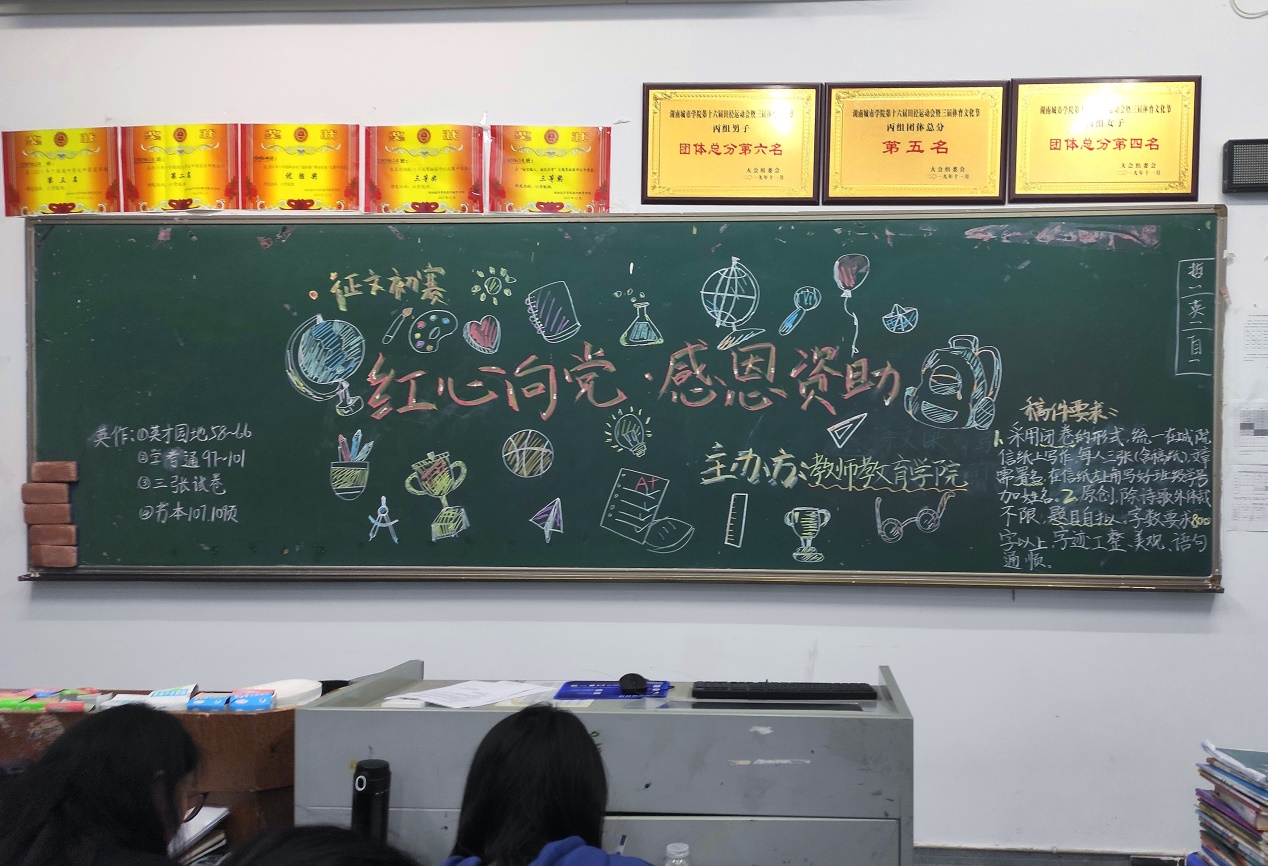 奖状
奖状
奖状
奖状
奖状
第三名
第二名
优胜奖
三等奖
三等奖
湖南城市学院第十六届田径运动会暨三届体育文化节
丙组男子
团体总分第六名
大会组委会
二〇一九年十一月
湖南城市学院第十六届田径运动会暨三届体育文化节
丙组团体总分
第五名
大会组委会
二〇一九年十一月
湖南城市学院第十六届田径运动会暨三届体育文化节
丙组女子
团体总分第四名
大会组委会
二〇一九年十一月
征文初赛
红心向党·感恩资助
主办方:教师教育学院
A+
英作:①英才园地58-66
②学普通97-101
③三张试卷
④书本107.108页
稿件要求:
1.采用闭卷的形式,统一在城院
信纸上写作,每人三张(含稿纸),文章
需署名,在信纸左上角写好班级学号
加姓名。2.原创,除诗歌外体裁
不限,题目自拟,字数要求800
字以上,字迹工整、美观、语句
通顺。
哲
一
英
二
自
一